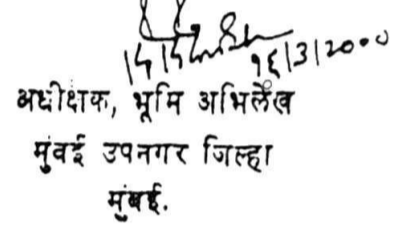 १६/३/२०००
अधीक्षक, भूमि अभिलेख
मुंबई उपनगर जिल्हा
मुंबई.